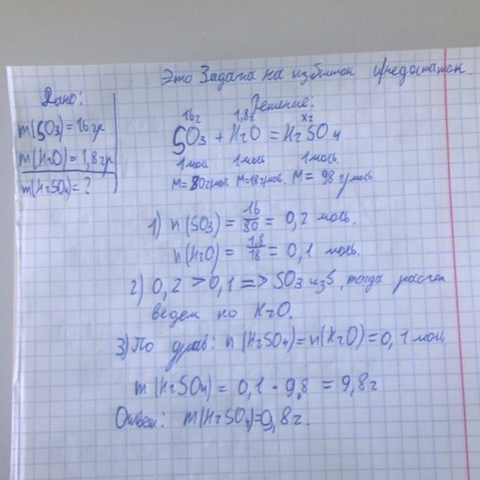 Это Задача на избыток и недостаток.
Дано:
m(SO₃)=16гр
m(H₂O)=1,8гр
m(H₂SO₄)=?
Решение:
16г 1,8г xг
SO₃ + H₂O = H₂SO₄
1моль 1моль 1моль.
M=80г/мол M=18г/моль. M= 98 г/моль.
1) n(SO₃) = 16/80 = 0,2 моль.
n(H₂O) = 1,8/18 = 0,1 моль.
2) 0,2 > 0,1 => SO₃ изб, тогда расчет
ведем по H₂O.
3) По урав: n(H₂SO₄)=n(H₂O)=0,1моль
m(H₂SO₄) = 0,1 · 9,8 = 9,8г
Ответ: m(H₂SO₄)=9,8г.